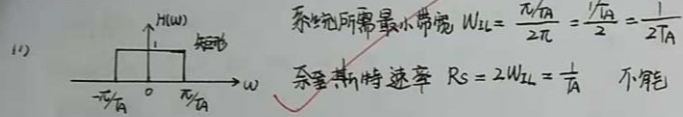 (1)
H(ω)
1
矩形
ω
-π/TA 0 π/TA
系统所需最小带宽 W₂L = π/TA / 2π = 1/TA / 2 = 1/2TA
奈奎斯特速率 Rs = 2W₂L = 1/TA 不能